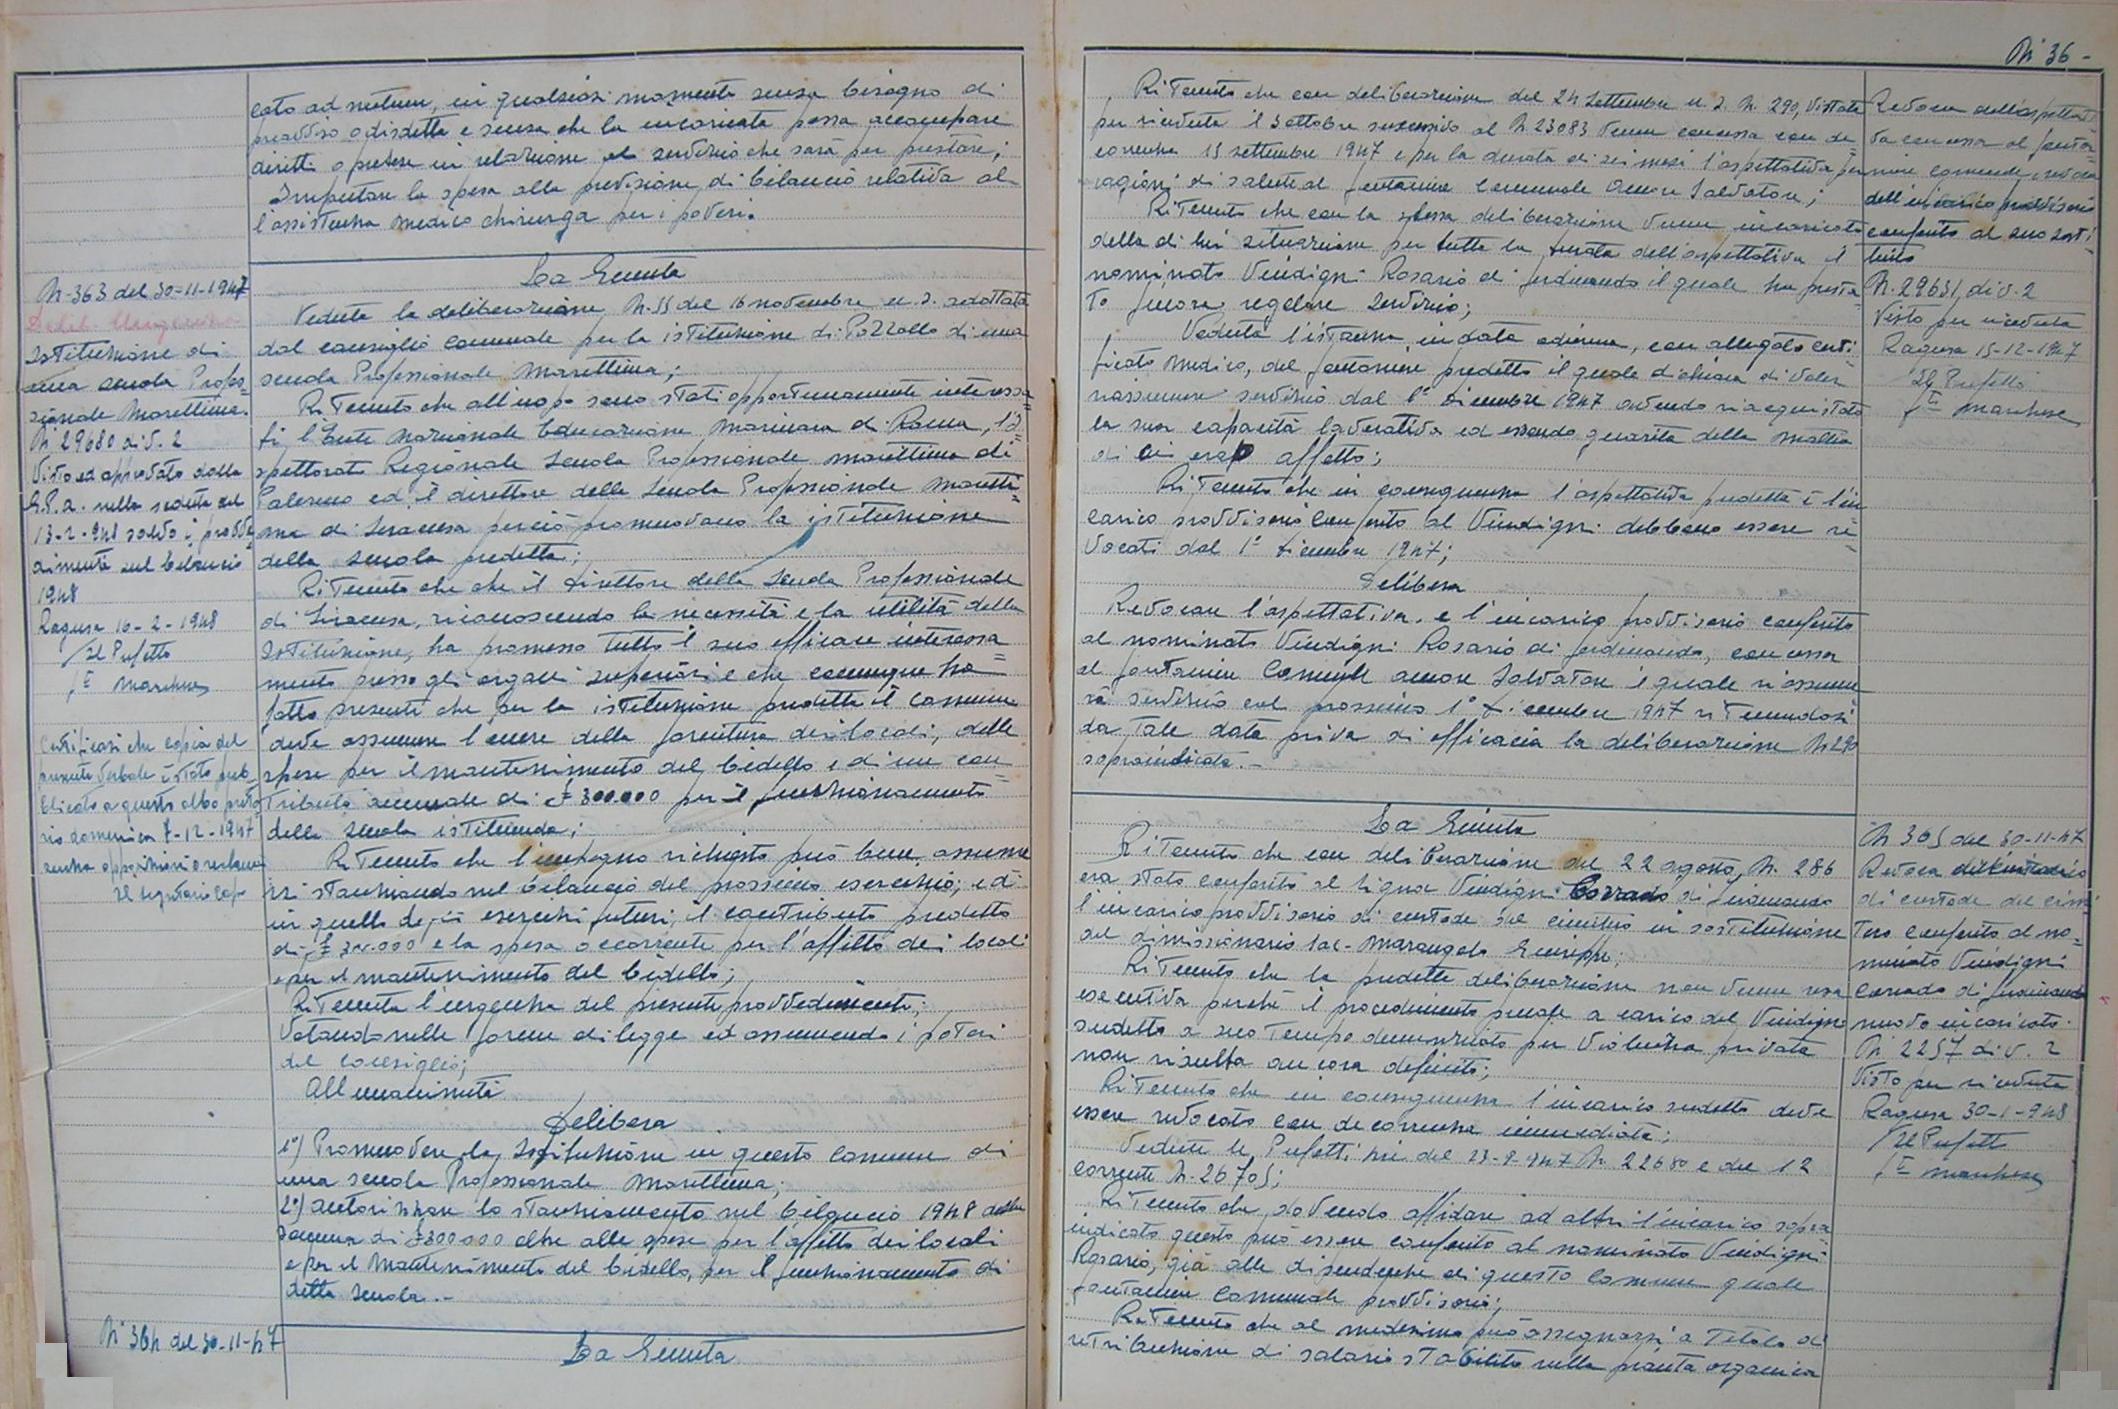 cato ad nutum, in qualsiasi momento senza bisogno di
preavviso o disdetta e senza che la incaricata possa accampare
diritti o pretese in relazione al servizio che sarà per prestare;
Imputare la spesa alla previsione di bilancio relativa al
l'assistenza medico chirurga per i poveri.
N. 363 del 30-11-1947
Istituzione di
una scuola Profes=
sionale Marittima.
N 29680 div. 2
Visto ed approvato dalla
G.P.A. nella seduta del
13-2-948 salvo i provve
dimenti sul bilancio
1948
Ragusa 16-2-1948
Il Prefetto
Certificasi che copia del
presente verbale è stato pub
blicato a questo albo preto
rio domenica 7-12-1947
senza opposizioni o reclami
Il segretario Capo
La Giunta
Veduta la deliberazione N. 55 del 16 novembre u. s. adottata
dal consiglio comunale per la istituzione di Pozzallo di una
scuola Professionale Marittima;
Ritenuto che all'uopo sono stati opportunamente interessa=
ti l'Ente Nazionale Educazione Marinara di Roma, l'I=
spettorato Regionale Scuola Professionale marittima di
Palermo ed il direttore della Scuola Professionale Maritti=
ma di Siracusa perciò promuovano la istituzione
della scuola predetta;
Ritenuto che che il direttore della Scuola Professionale
di Siracusa, riconoscendo la necessità e la utilità della
Istituzione, ha promesso tutto il suo efficace interessa=
mento presso gli organi superiori e che comunque ha
fatto presente che per la istituzione predetta il Comune
deve assumere l'onere della fornitura dei locali, delle
spese per il mantenimento del bidello e di un con=
tributo annuale di £ 300.000 per il funzionamento
della scuola istituenda;
Ritenuto che l'impegno richiesto può bene assumer
si stanziando nel bilancio del prossimo esercizio, e di
in quello degli esercizi futuri, il contributo predetto
di £ 300.000 e la spesa occorrente per l'affitto dei locali
e per il mantenimento del bidello;
Ritenuta l'urgenza del presente provvedimento;
Votando nelle forme di legge ed assumendo i poteri
del consiglio;
All'unanimità
Delibera
1°) Promuovere la Istituzione in questo Comune di
una scuola Professionale Marittima;
2°) autorizzare lo stanziamento nel bilancio 1948 della
somma di £ 300000 oltre alle spese per l'affitto dei locali
e per il mantenimento del bidello, per il funzionamento di
detta scuola.-
N° 364 del 30-11-47
La Giunta
N° 36 -
Ritenuto che con deliberazione del 24 Settembre u. s. N. 290, vistata
per ricevuta il 3 ottobre successivo al N 23083 venne concessa con de=
correnza 15 settembre 1947 e per la durata di sei mesi l'aspettativa per
ragioni di salute al fontaniere Comunale Amore Salvatore;
Ritenuto che con la stessa deliberazione venne incaricato
della di lui situazione per tutta la durata dell'aspettativa il
nominato Vindigni Rosario di Ferdinando il quale ha presta=
to finora regolare servizio;
Veduta l'istanza, in data odierna, con allegato certi
ficato medico, del fontaniere predetto il quale dichiara di voler
riassumere servizio dal 1° dicembre 1947 avendo riacquistato
la sua capacità lavorativa ed essendo guarito della malattia
di cui era affetto;
Ritenuto che in conseguenza l'aspettativa predetta e l'in
carico provvisorio conferito al Vindigni debbano essere re=
vocati dal 1° dicembre 1947;
Delibera
Revocare l'aspettativa. e l'incarico provvisorio conferito
al nominato Vindigni Rosario di Ferdinando, concessa
al fontaniere Comunale Amore Salvatore il quale riassume
rà servizio col prossimo 1° dicembre 1947 ritenendosi
da tale data priva di efficacia la deliberazione N 290
sopraindicata.-
Revoca dell'aspettati
va concessa al fonta=
niere comunale e revoca
dell'incarico provvisorio
conferito al suo sosti=
tuto
N. 29631 div. 2
Visto per ricevuta
Ragusa 15-12-1947
Il Prefetto
La Giunta
Ritenuto che con deliberazione del 22 agosto, N. 286
era stato conferito al Signor Vindigni Corrado di Ferdinando
l'incarico provvisorio di custode del cimitero in sostituzione
del dimissionario Sac. Marangelo Giuseppe;
Ritenuto che la predetta deliberazione non venne resa
esecutiva perché il procedimento penale a carico del Vindigni
sudetto a suo tempo denunziato per violenza privata
non risulta ancora definito;
Ritenuto che in conseguenza l'incarico sudetto deve
essere revocato con decorrenza immediata;
Vedute le Prefettizie del 23-9-947 N. 22680 e del 12
corrente N. 26705;
Ritenuto che, dovendo affidare ad altri l'incarico sopra
indicato questo può essere conferito al nominato Vindigni
Rosario, già alle dipendenze di questo Comune quale
fontaniere Comunale provvisorio;
Ritenuto che al medesimo può assegnarsi a titolo di
retribuzione di salario stabilito nella pianta organica
N 365 del 30-11-47
Revoca dell'incarico
di custode del cimi
tero conferito al no=
minato Vindigni
Corrado di Ferdinando
nuovo incaricato.
N 2257 div. 2
Visto per ricevuta
Ragusa 30-1-948
Il Prefetto